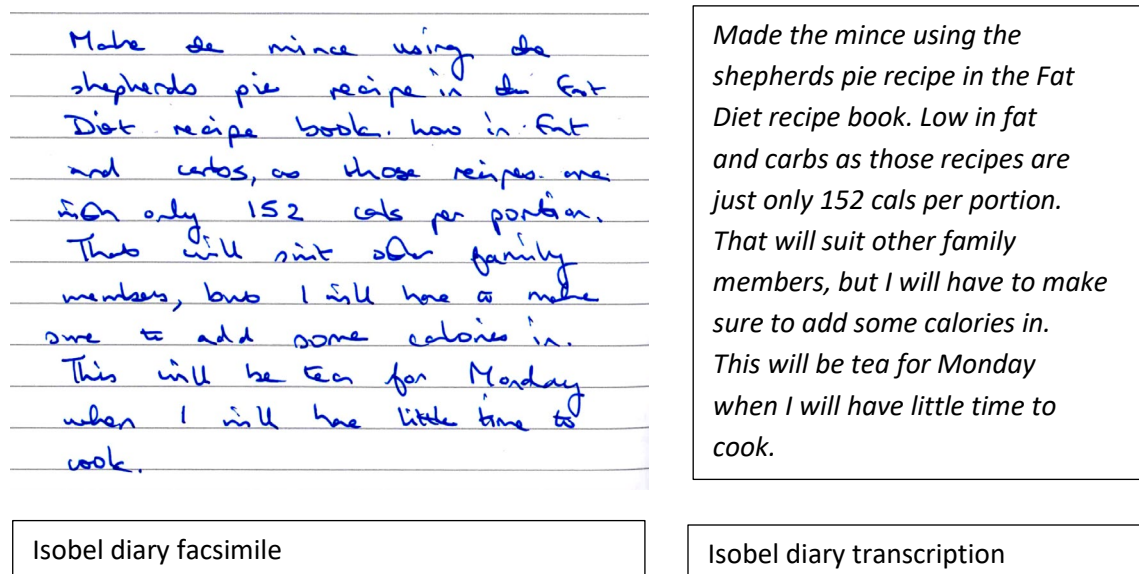 Made the mince using the
shepherds pie recipe in the Fat
Diet recipe book. Low in fat
and carbs, as those recipes are
only 152 cals per portion.
That will suit other family
members, but I will have to make
sure to add some calories in.
This will be tea for Monday
when I will have little time to
cook.
Made the mince using the
shepherds pie recipe in the Fat
Diet recipe book. Low in fat
and carbs as those recipes are
just only 152 cals per portion.
That will suit other family
members, but I will have to make
sure to add some calories in.
This will be tea for Monday
when I will have little time to
cook.
Isobel diary facsimile
Isobel diary transcription